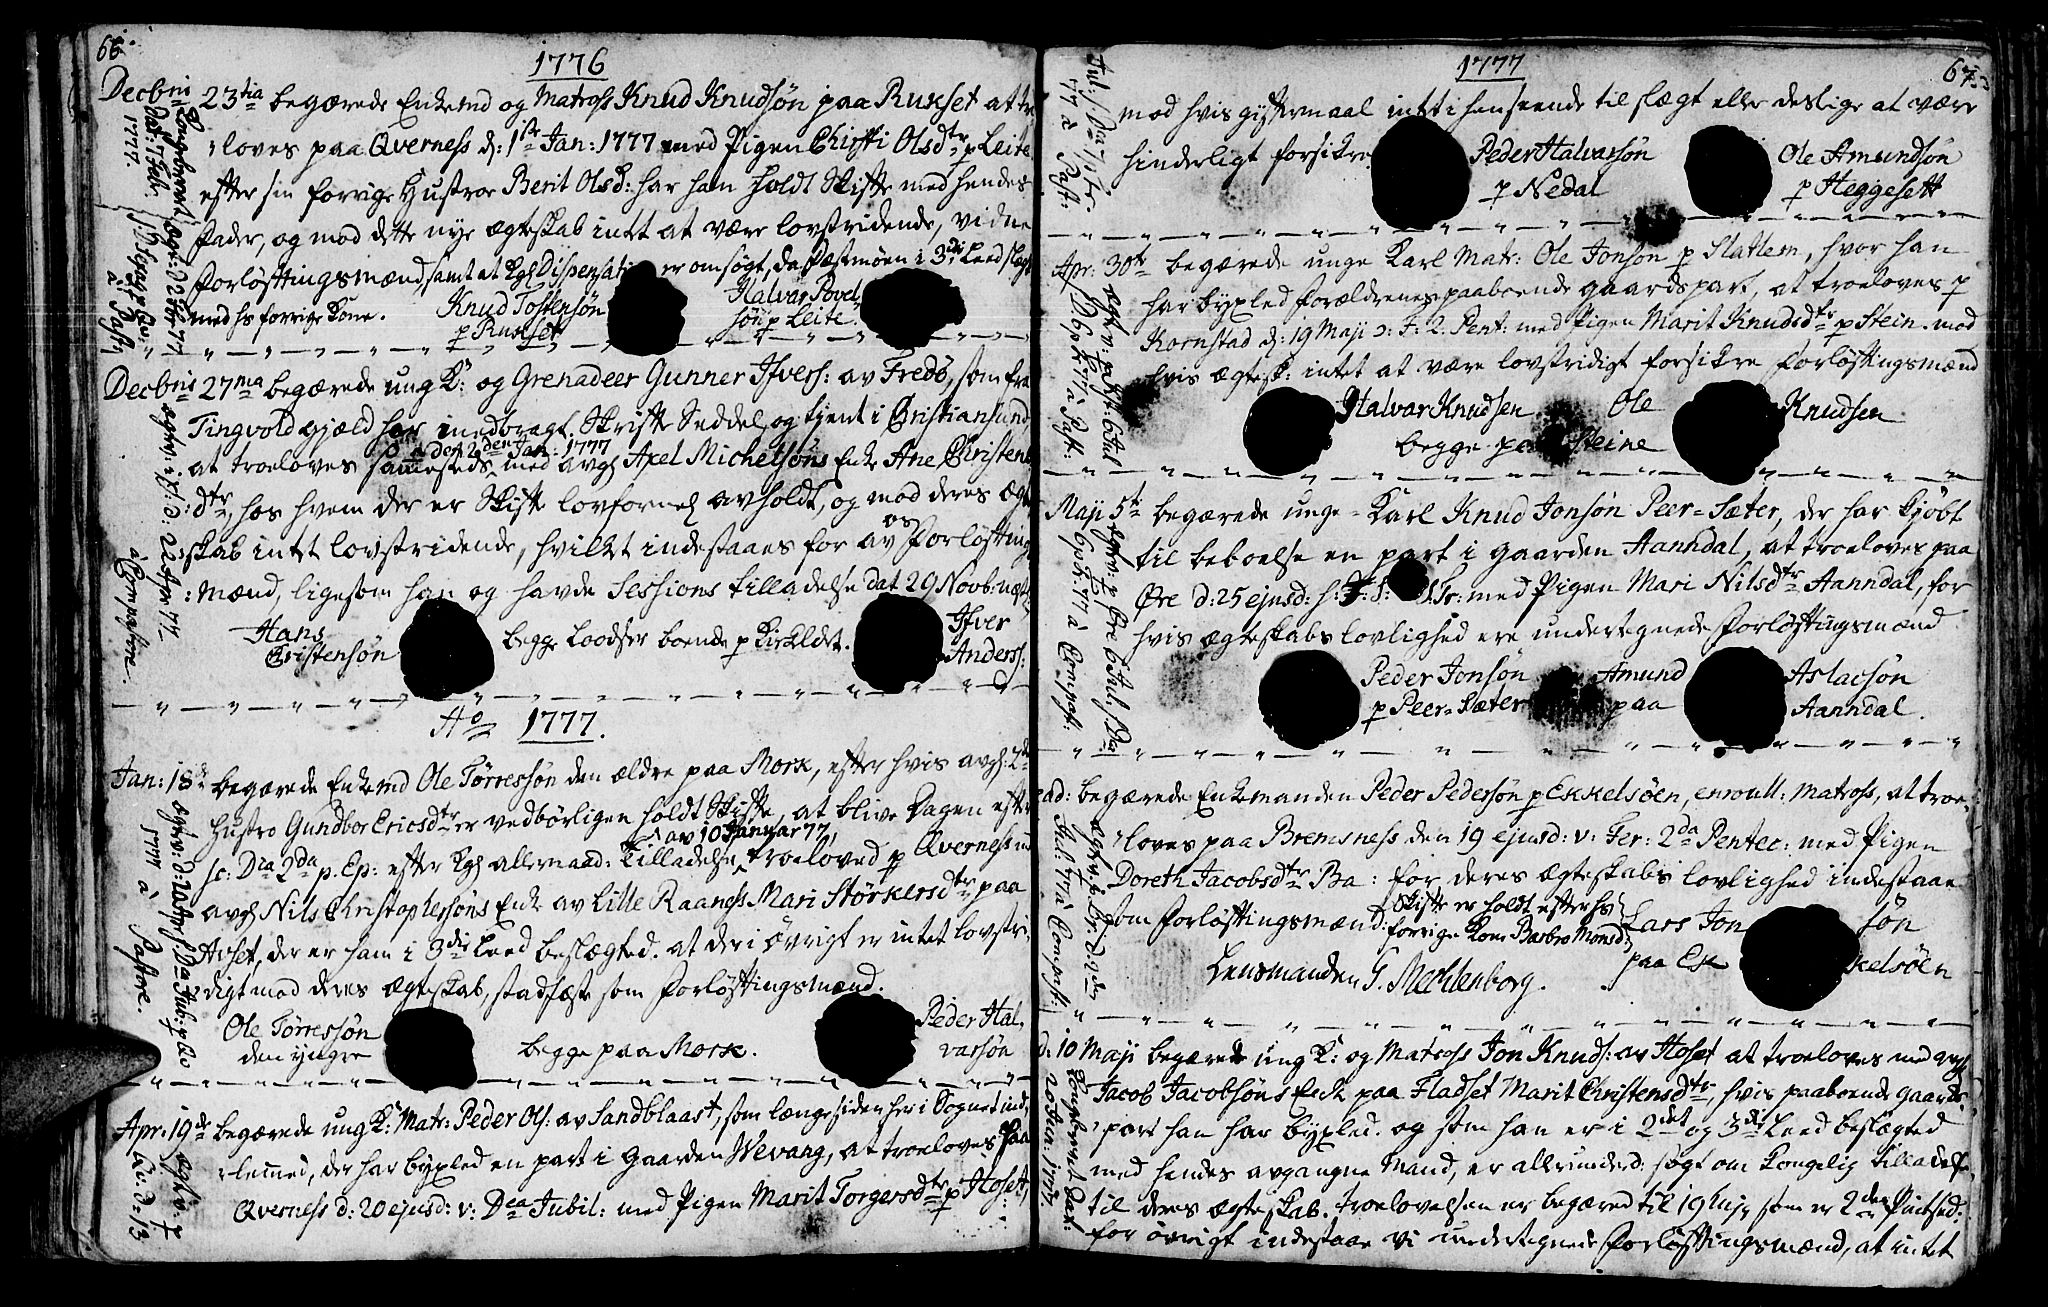 66.
1776
Decbris 23tia begærede Enkemd og Matross Knud Knudsøn paa Ruxset at tro
loves paa Qverness d: 1ste Jan: 1777 med Pigen Chirsti Olsdtr p Leite
efter sin forrige Hustroe Berit Olsd: har han holdt Skifte med hendes
Fader, og mod dette nye ægteskab intet at være lovstridende, vidne
Forløftingsmænd samt at Kgl Dispensation er omsøgt, da Fæstmøen i 3die Leed slægt
med hs forrige Kone.
Knud Tostensøn
p Ruxset
Halvar Povel
søn p Leite.
Decbris 27ma begærede ung K: og Grenadeer Gunner Ifvers: av Fredø, som fra
Tingvold gjæld har medbragt Skrifte Seddel og tjent i Christiansund
at troeloves sammesteds den 2den Jan: 1777 med avgl Axel Michelsøns Enke Ane Christens
:dtr, hos hvem der er Skifte lovformel avholdt, og mod deres Ægte
:skab intet lovstridende, hvilket indestaaes for av os Forløftings
:mænd, ligesom han og havde Sessions tilladelse dat 29 Novb: næst
Hans
Cristensøn
begge Loodser boende p Kirkldt.
Ifver
Anders:
Ao 1777.
Jan: 18de begærede Enkemd Ole Tørressøn den ældre paa Mork, efter hvis avgl: 2de
Hustro Gundbor Ericsdtr er vedbørligen holdt Skifte, at blive Dagen efter
sc: Dca 2da p. Ep: efter Kgl allernaad: Tilladelse av 10 Januar 77, troeloved p Qverness med
avgl Nils Christophersøns Enke av Lille Raaness Mari Størkersdtr paa
Hoset, der er ham i 3die Leed beslægted. at der i øvrigt er intet lovstri
digt mod deres ægteskab, stadfæste som Forløftingsmænd.
Ole Tørressøn
den yngre
begge paa Mork.
Peder Hal
varsøn
Apr: 19de begærede ung K: Matr: Peder Ols: av Sandblaast, som længe siden her i Sognet ind
lemmed, der har byxled en part i Gaarden Wevang, at troeloves paa
Qverness d: 20 ejusd: v: Dca Jubil: med Pigen Marit Torgersdtr p Hoset,
1777
67.
mod hvis gifftermaal intet i henseende til slægt eller deslige at være
hinderligt forsikre
Peder Halvarsøn
p Nedal
Ole Amundsøn
p Heggesett
Apr: 30te begærede unge Karl Matr: Ole Jonsøn p Slatlem, hvor han
har byxled Forældrenes paaboende gaards part, at troeloves p
Kornstad d: 19 Maji ɔ: F: 2. Pent: med Pigen Marit Knudsdtr p Stein. mod
hvis ægtesk: intet at være lovstridigt forsikre Forløftingsmænd
Halvar Knudsen
Ole
Knudsen
begge paa Steine
Maji 5te begærede unge Karl Knud Jonsøn Peer-Sæter, der har kjøbt
til beboelse en part i gaarden Aanndal, at troeloves paa
Øre d: 25 ejusd: med Pigen Mari Nilsdtr Aanndal, for
hvis ægteskabs lovlighed ere undertegnede Forløftingsmænd
Peder Jonsøn
p Peer-Sæter
Amund
paa
Aslacsøn
Aanndal.
ead: begærede Enkemanden Peder Pedersøn p Ekkelsøen, enroull: Matross, at troe
loves paa Bremsness den 19 ejusd: v: Fer: 2da Pentec: med Pigen
Doreth Jacobsdtr Ba: for deres ægteskabs lovlighed indestaae
som Forløftingsmænd:
Skifte er holdt efter hs
forrige Kone Barbro Monsd:
Lars Jon
søn
paa Ek
kelsöen
Lensmanden G. Mechlenborg.
d: 10 Maji begærede ung K: og Matross Jon Knuds: av Hoset at troeloves med avgl
Jacob Jacobsøns Enke paa Fladset Marit Christensdtr, hvis paaboende gaards
part han har byxled. og som han er i 2det og 3die Leed beslægted
med hendes avgangne Mand, er allerunderd: søgt om Kongelig tilladelse
til deres ægteskab. troelovelsen er begæred til 19 huj9 som er 2den Pintsed:
for øvrigt indestaae vi undertegnede Forløftingsmænd, at intet